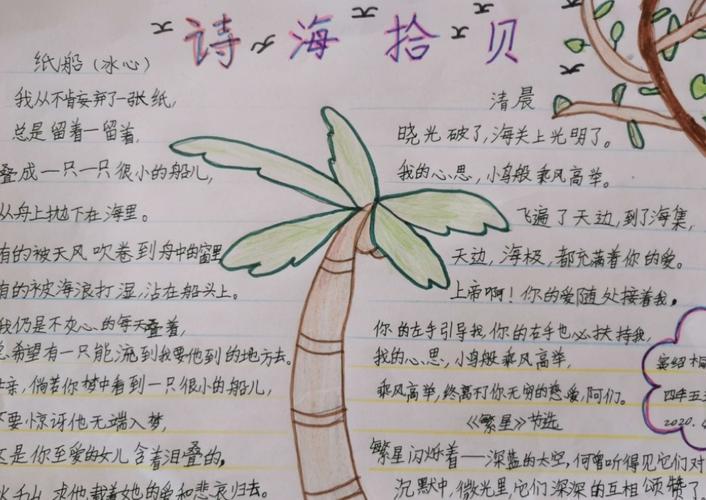 诗海拾贝
纸船（冰心）
我从不肯妄弃了一张纸，
总是留着一留着，
叠成一只一只很小的船儿，
从舟上抛下在海里。
有的被天风吹卷到舟中的窗里
有的被海浪打湿，沾在船头上。
我仍是不灰心的每天叠着，
总希望有一只能流到我要他到的地方去。
亲，倘若你梦中看到一只很小的船儿，
要惊讶他无端入梦，
这是你至爱的女儿含着泪叠的，
水千山 求他载着她的爱和悲哀归去。
清晨
晓光破了，海关上光明了。
我的心思，小鸟般乘风高举。
飞遍了天边，到了海集，
天边，海极，都充满着你的爱。
上帝啊！你的爱随处接着我，
你的左手引导我，你的右手也必扶持我，
我的心思，小鸟般乘风高举，
乘风高举，终离不了你无穷的慈爱，阿们。
《繁星》节选
繁星闪烁着——深蓝的太空，何曾听得见它们对
沉默中，微光里它们深深的互相颂赞了
四年五
2020.